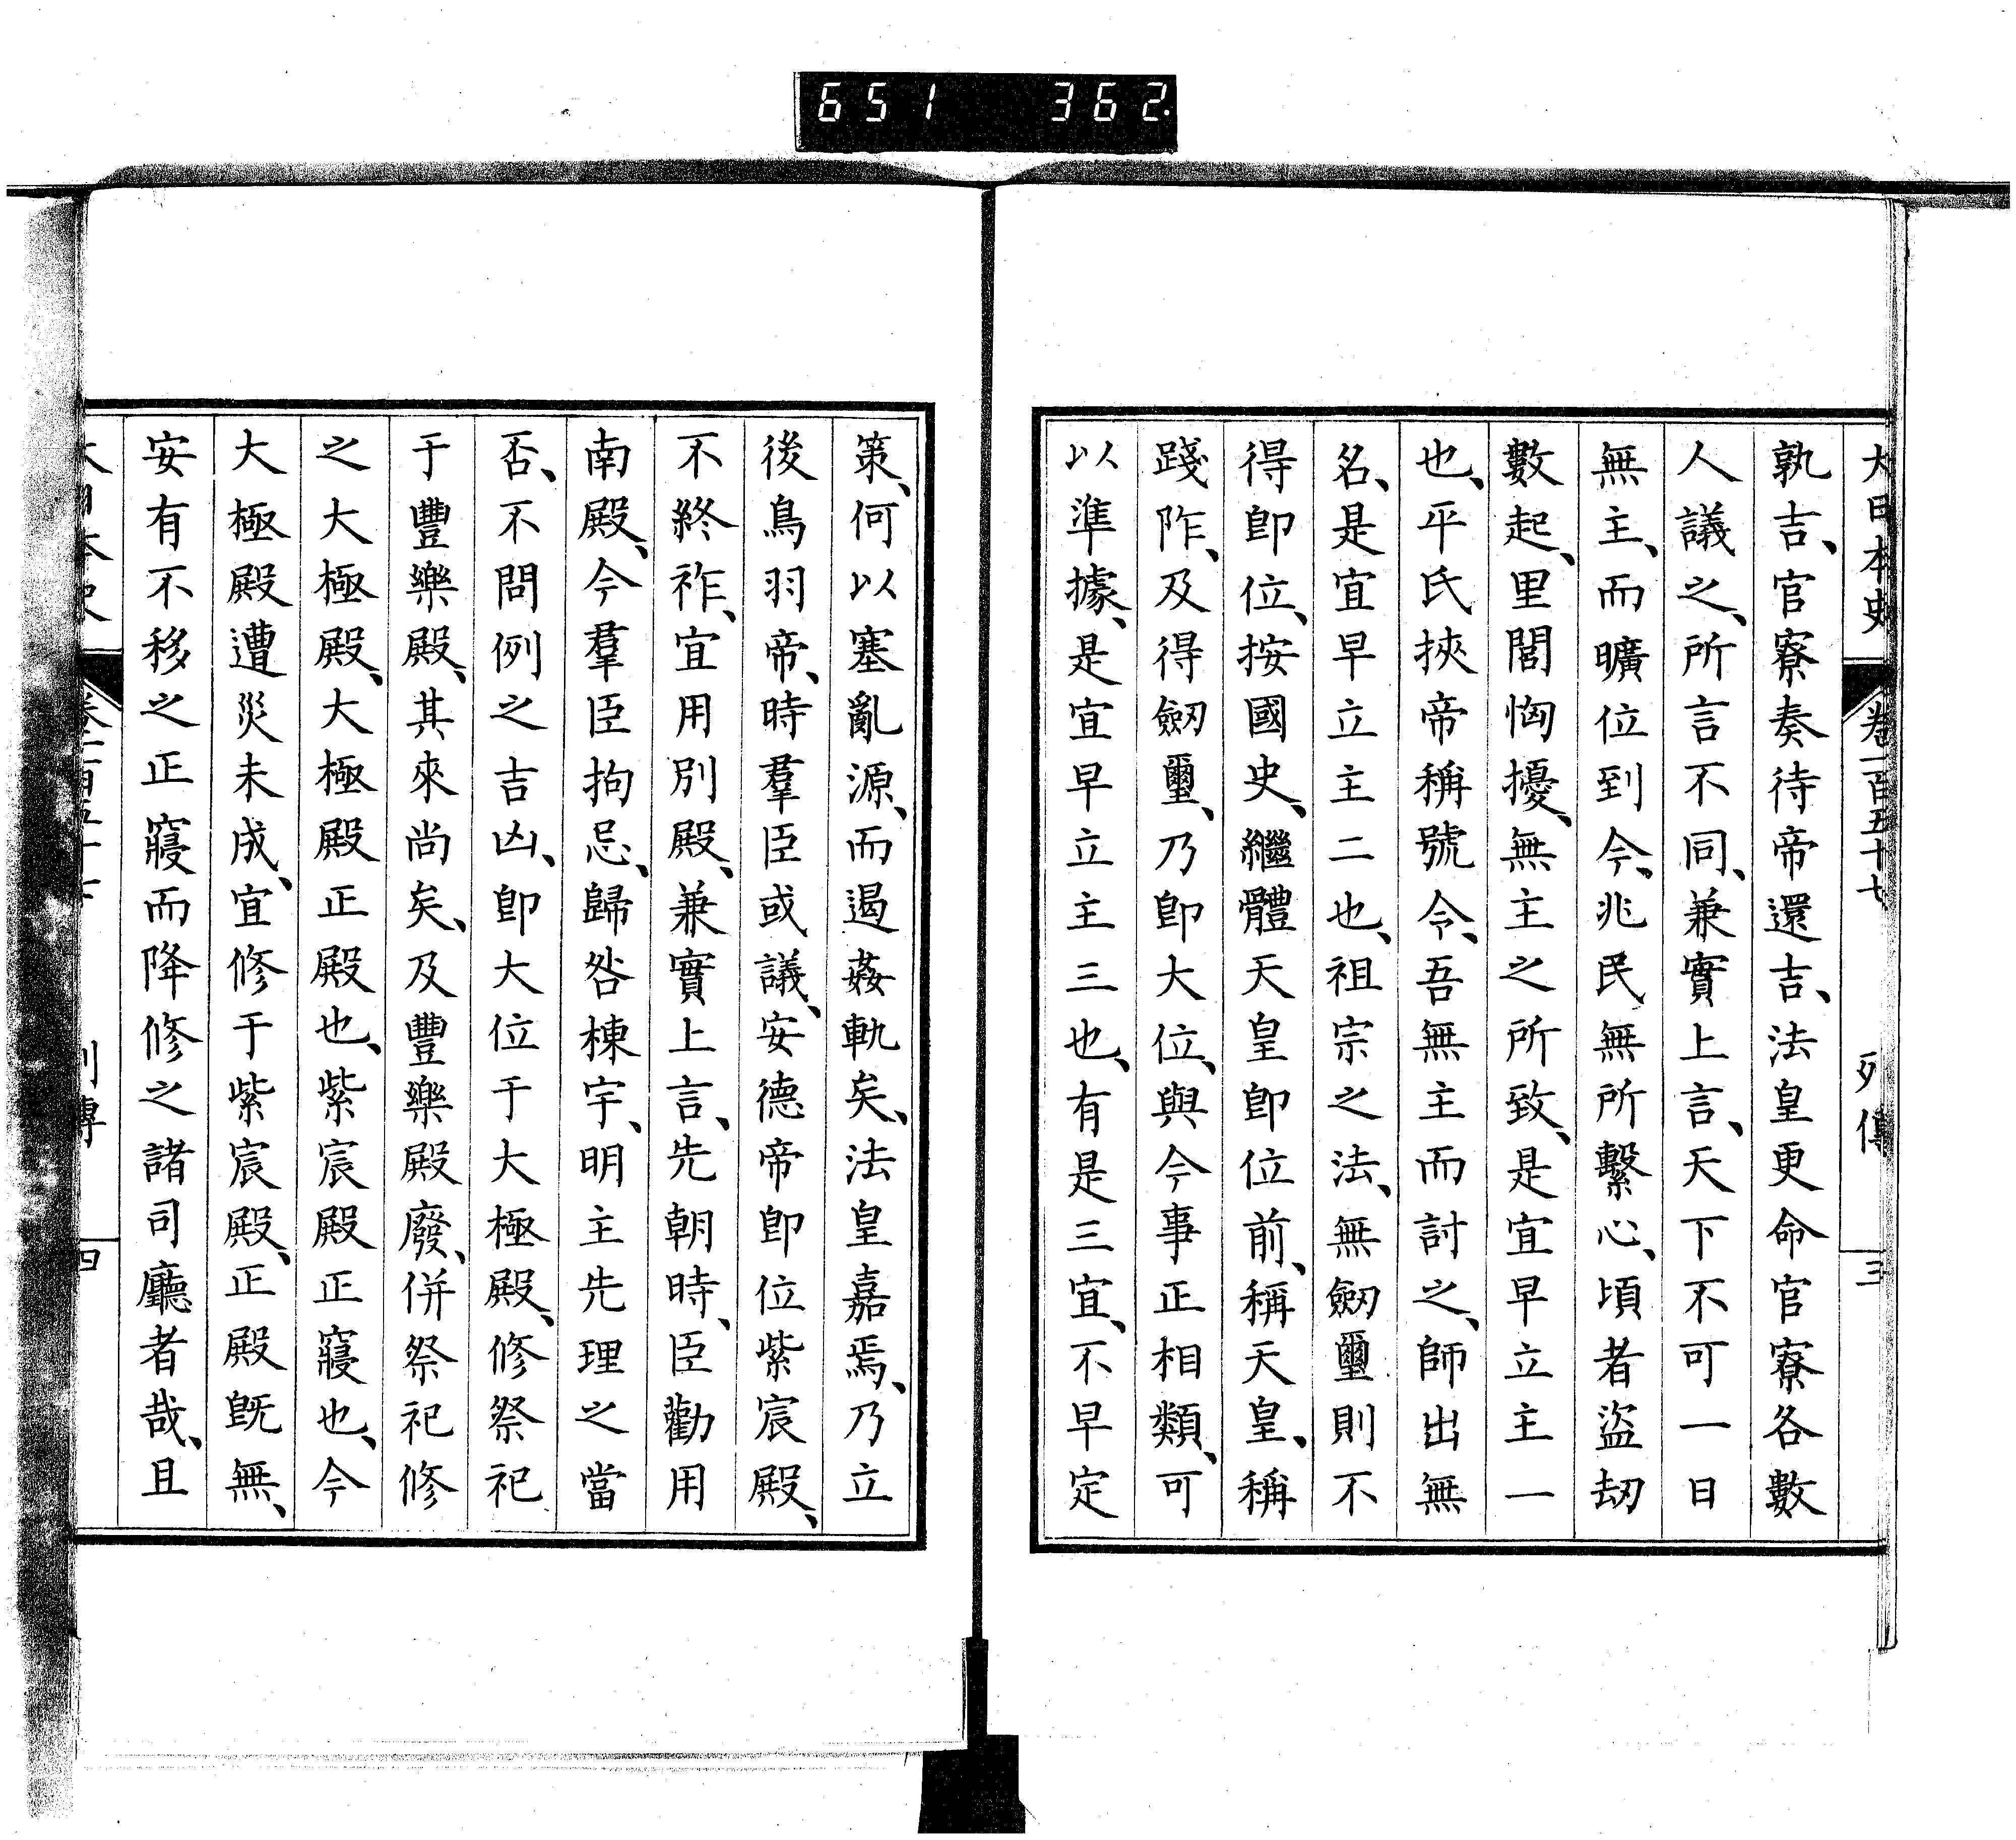 651 362.
大日本史 卷一百五十七 列傳 三
孰吉、官寮奏待帝還吉、法皇更命官寮各數
人議之、所言不同、兼實上言、天下不可一日
無主、而曠位到今、兆民無所繫心、頃者盜劫
數起、里閭恟擾、無主之所致、是宜早立主一
也、平氏挾帝稱號令、吾無主而討之、師出無
名、是宜早立主二也、祖宗之法、無劒璽則不
得卽位、按國史、繼體天皇卽位前、稱天皇、稱
踐阼、及得劒璽、乃卽大位、與今事正相類、可
以準據、是宜早立主三也、有是三宜、不早定
策、何以塞亂源、而遏姦軌矣、法皇嘉焉、乃立
後鳥羽帝、時羣臣或議、安德帝卽位紫宸殿、
不終祚、宜用別殿、兼實上言、先朝時、臣勸用
南殿、今羣臣拘忌、歸咎棟宇、明主先理之當
否、不問例之吉凶、卽大位于大極殿、修祭祀
于豐樂殿、其來尚矣、及豐樂殿廢、併祭祀修
之大極殿、大極殿正殿也、紫宸殿正寢也、今
大極殿遭災未成、宜修于紫宸殿、正殿旣無、
安有不移之正寢而降修之諸司廳者哉、且
大日本史 卷一百五十七 列傳 四